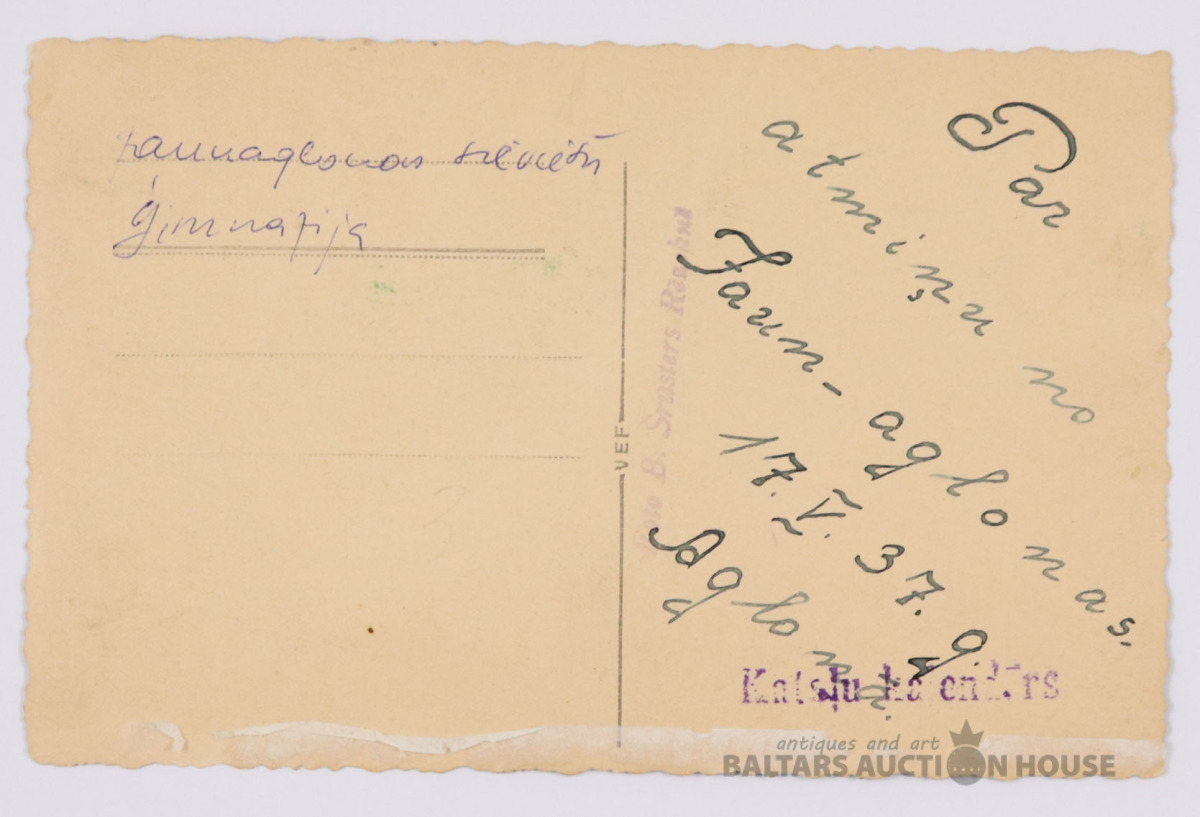 jaunaglonas sieviešu
ģimnazija
VEF
Foto B. Šrusters Rēzeknē
Par
atmiņu no
Jaun-aglonas.
17. V. 37. g
Aglonā.
Katoļu kalendārs
antiques and art
BALTARS AUCTION HOUSE